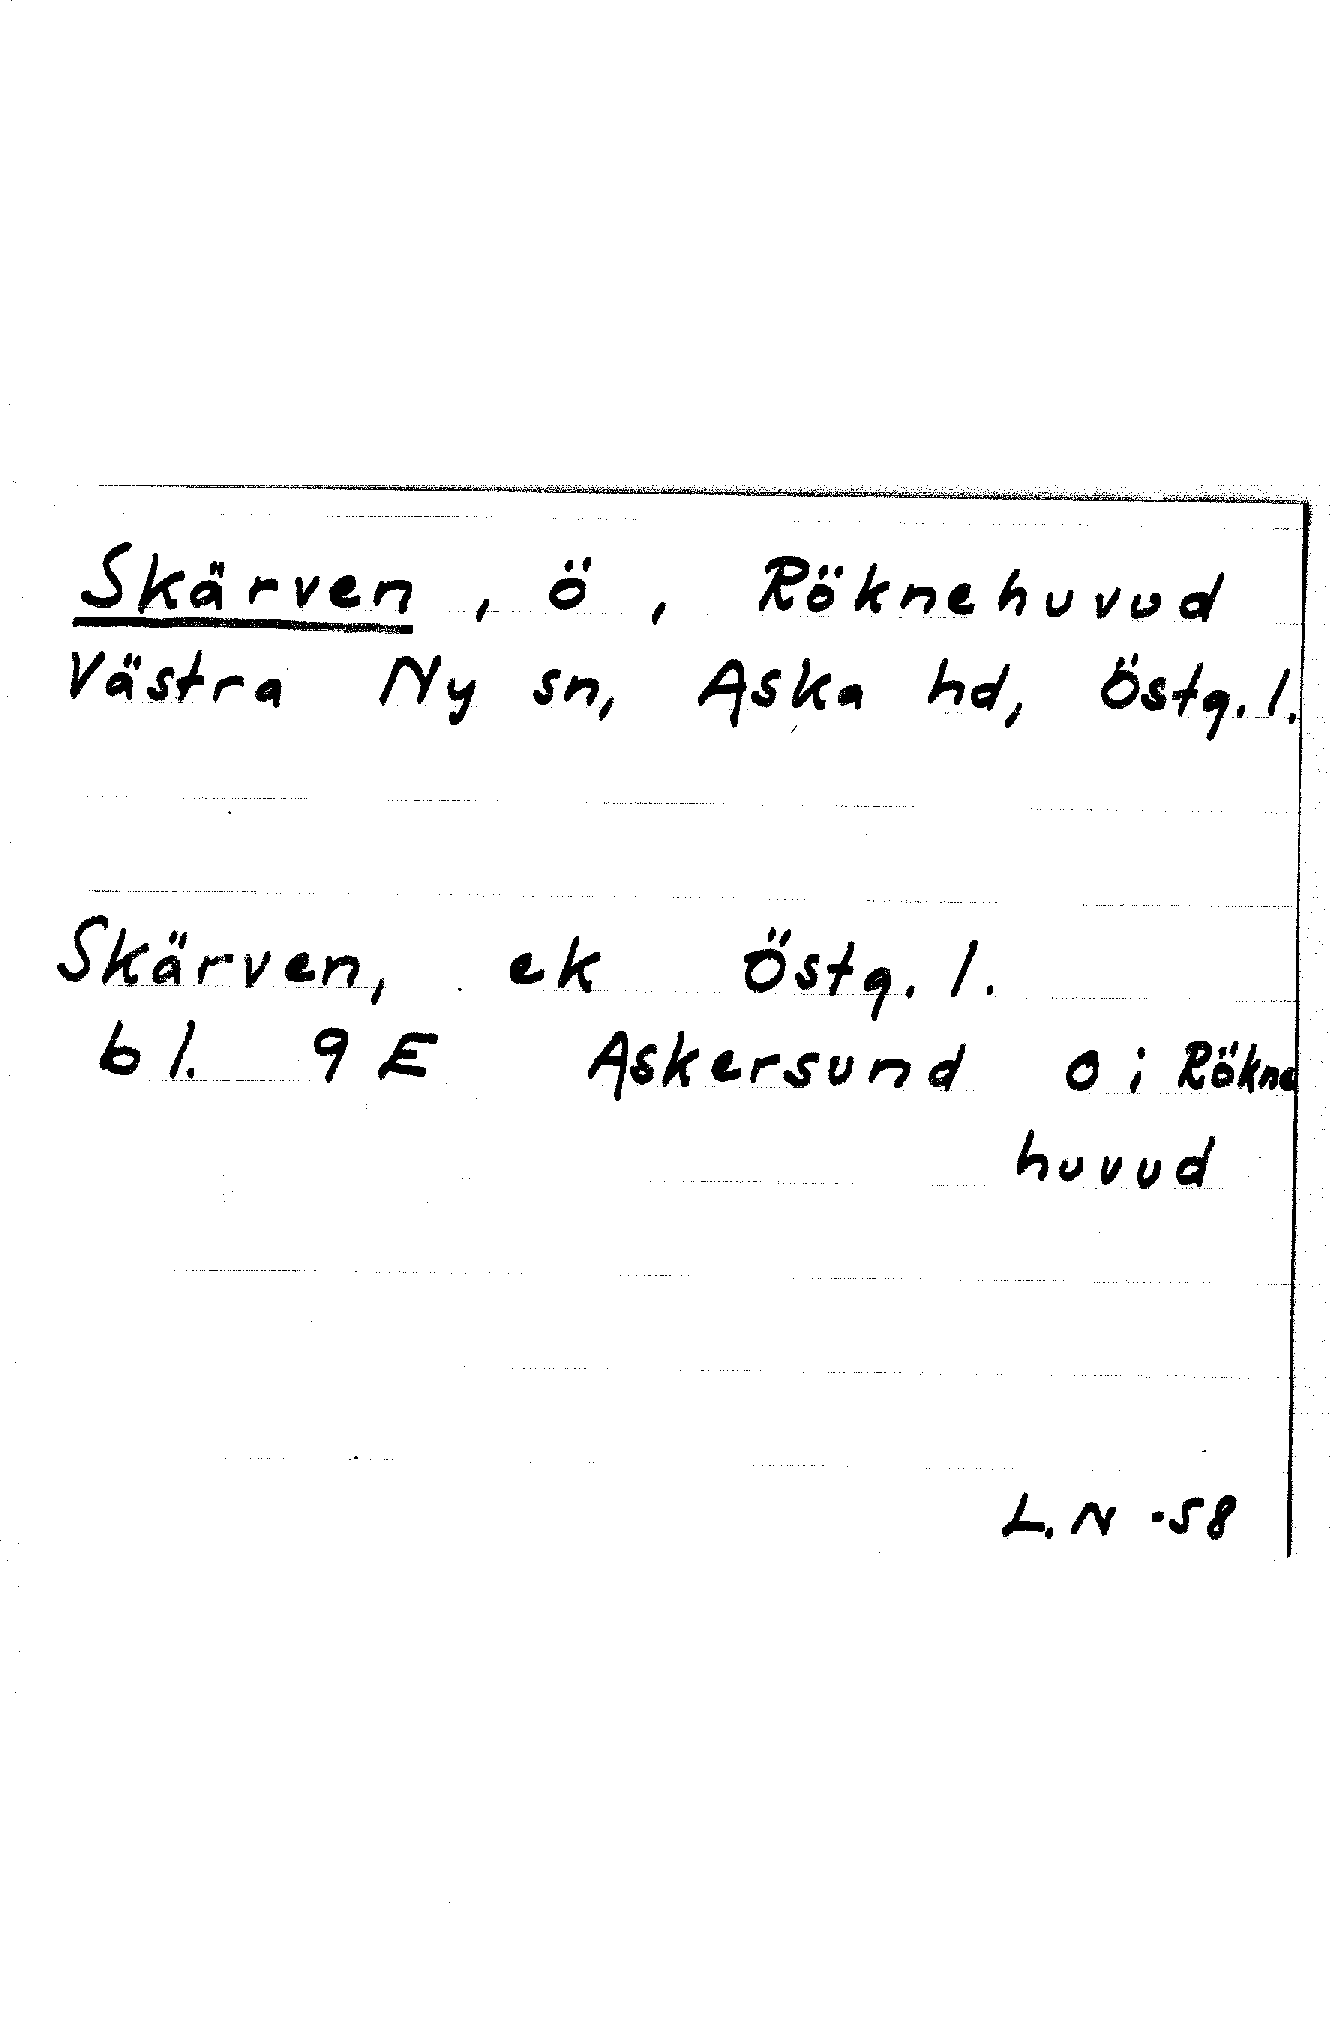 Skärven, ö, Röknehuvud
Västra Ny sn, Aska hd, Östg.l.
Skärven, ek Östg.l.
bl. 9E Askersund o i Rökne
huvud
L.N -58